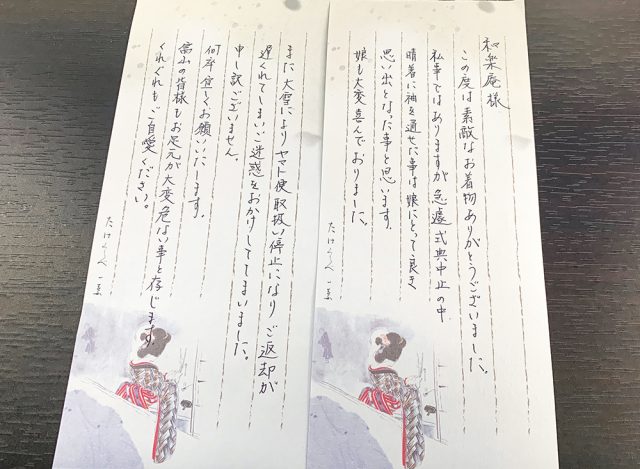 和楽庵様
この度は素敵なお着物ありがとうございました。
私事ではありますが急遽式典中止の中
晴着に袖を通せた事は娘にとって良き
思い出となった事と思います。
娘も大変喜んでおりました。
また大雪によりヤマト便取扱い停止になりご返却が
遅くれてしまいご迷惑をおかけしてしまいました。
申し訳ございません。
何卒宜しくお願いいたします。
富山の皆様もお足元が大変危ない事と存じます。
くれぐれもご自愛ください。